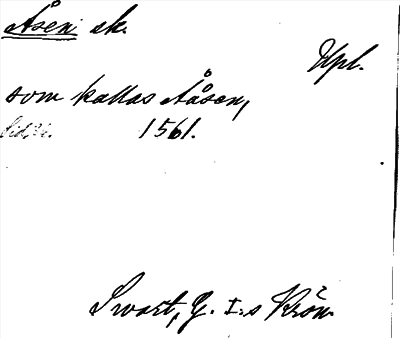 Åsen sk.
Upl.
som kallas Aåsen,
1561.
Swart, G. I:s Krön.